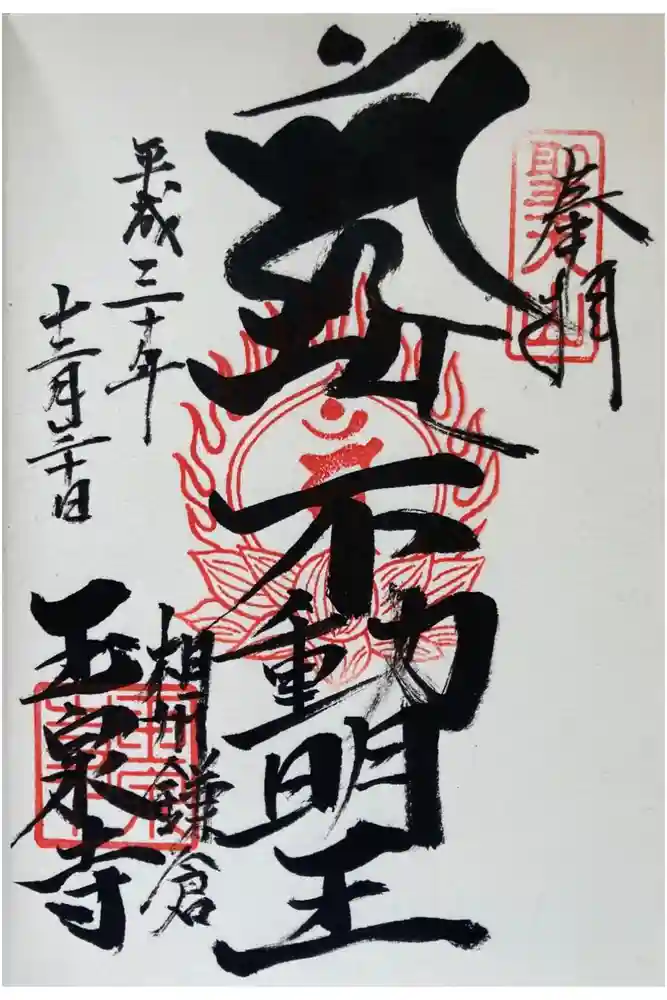 奉拝
不動明王
平成三十年
十二月三十日
相州鎌倉
玉泉寺